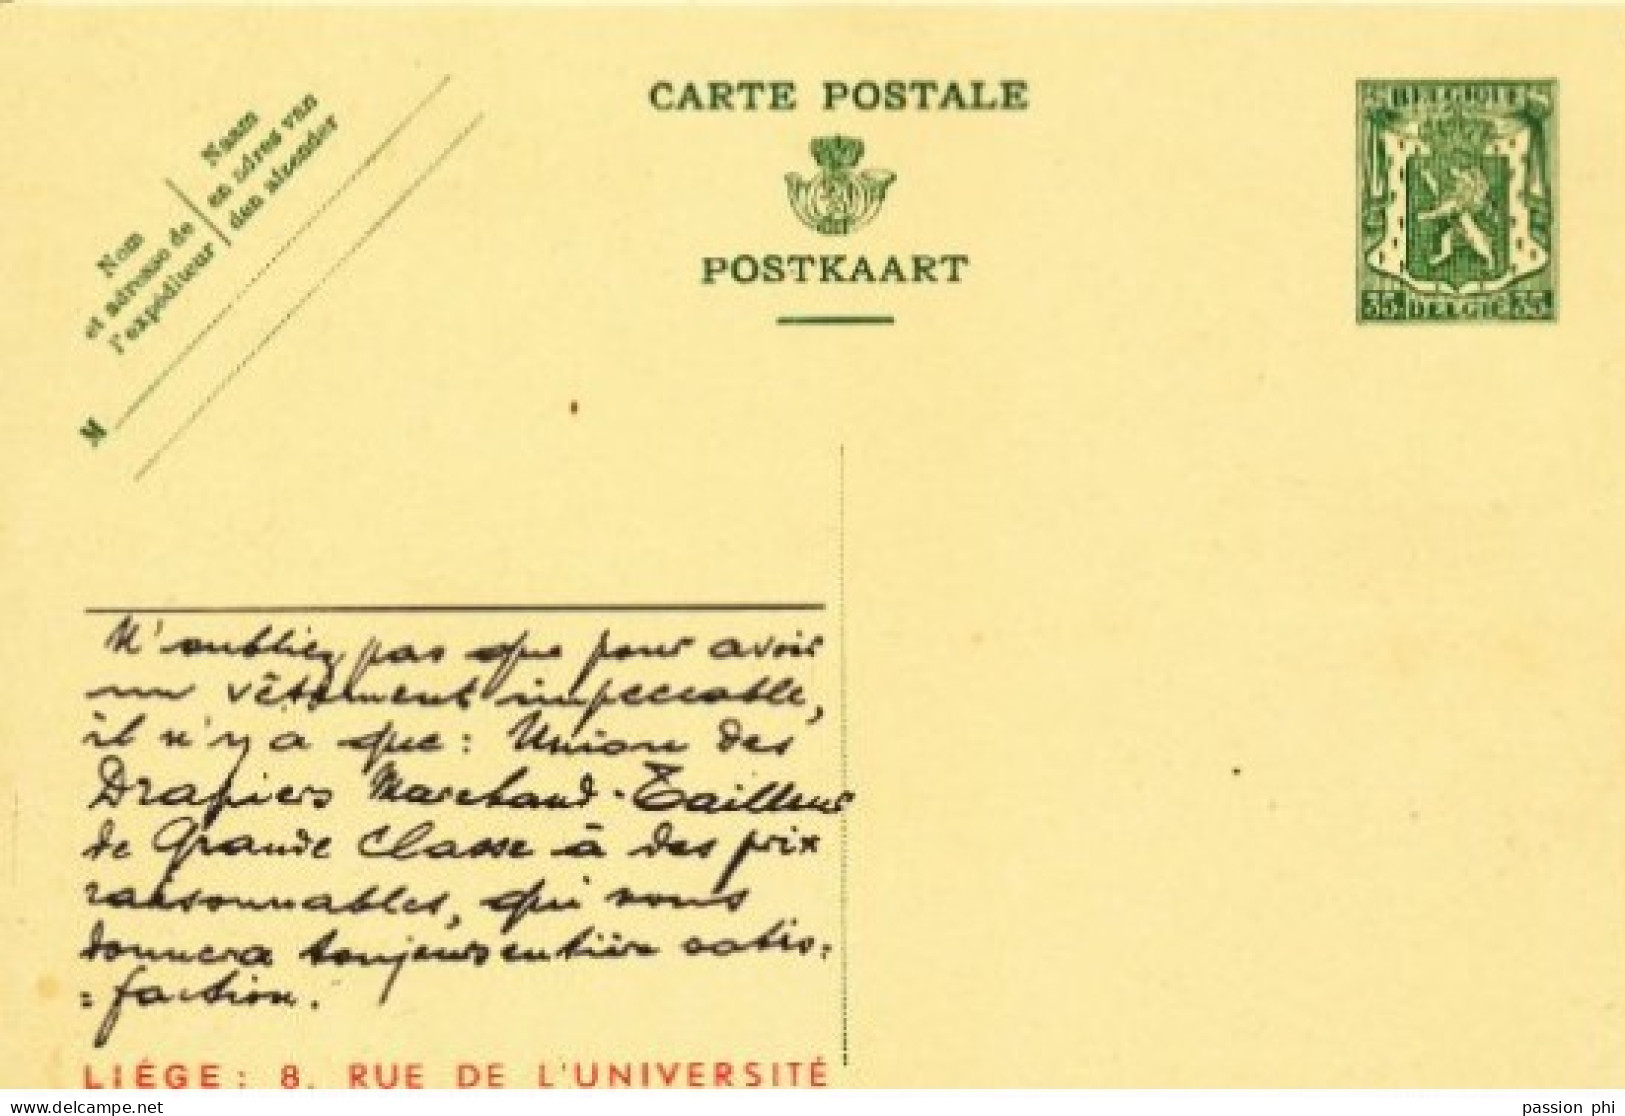 CARTE POSTALE
POSTKAART
BELGIQUE
35 BELGIË 35
Nom
et adresse de
l'expéditeur
Naam
en adres van
den afzender
N
N'oubliez pas que pour avoir
un vêtement impeccable,
il n'y a que : Union des
Drapiers Marchand-Tailleur
de Grande Classe à des prix
raisonnables, qui vous
donnera toujours entière satis=
=faction.
LIÉGE : 8, RUE DE L'UNIVERSITÉ
www.delcampe.net
passion phi